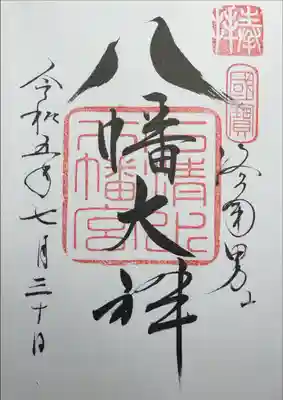 奉拝
國寶
洛南男山
八幡大神
石清水
八幡宮
令和五年七月三十日